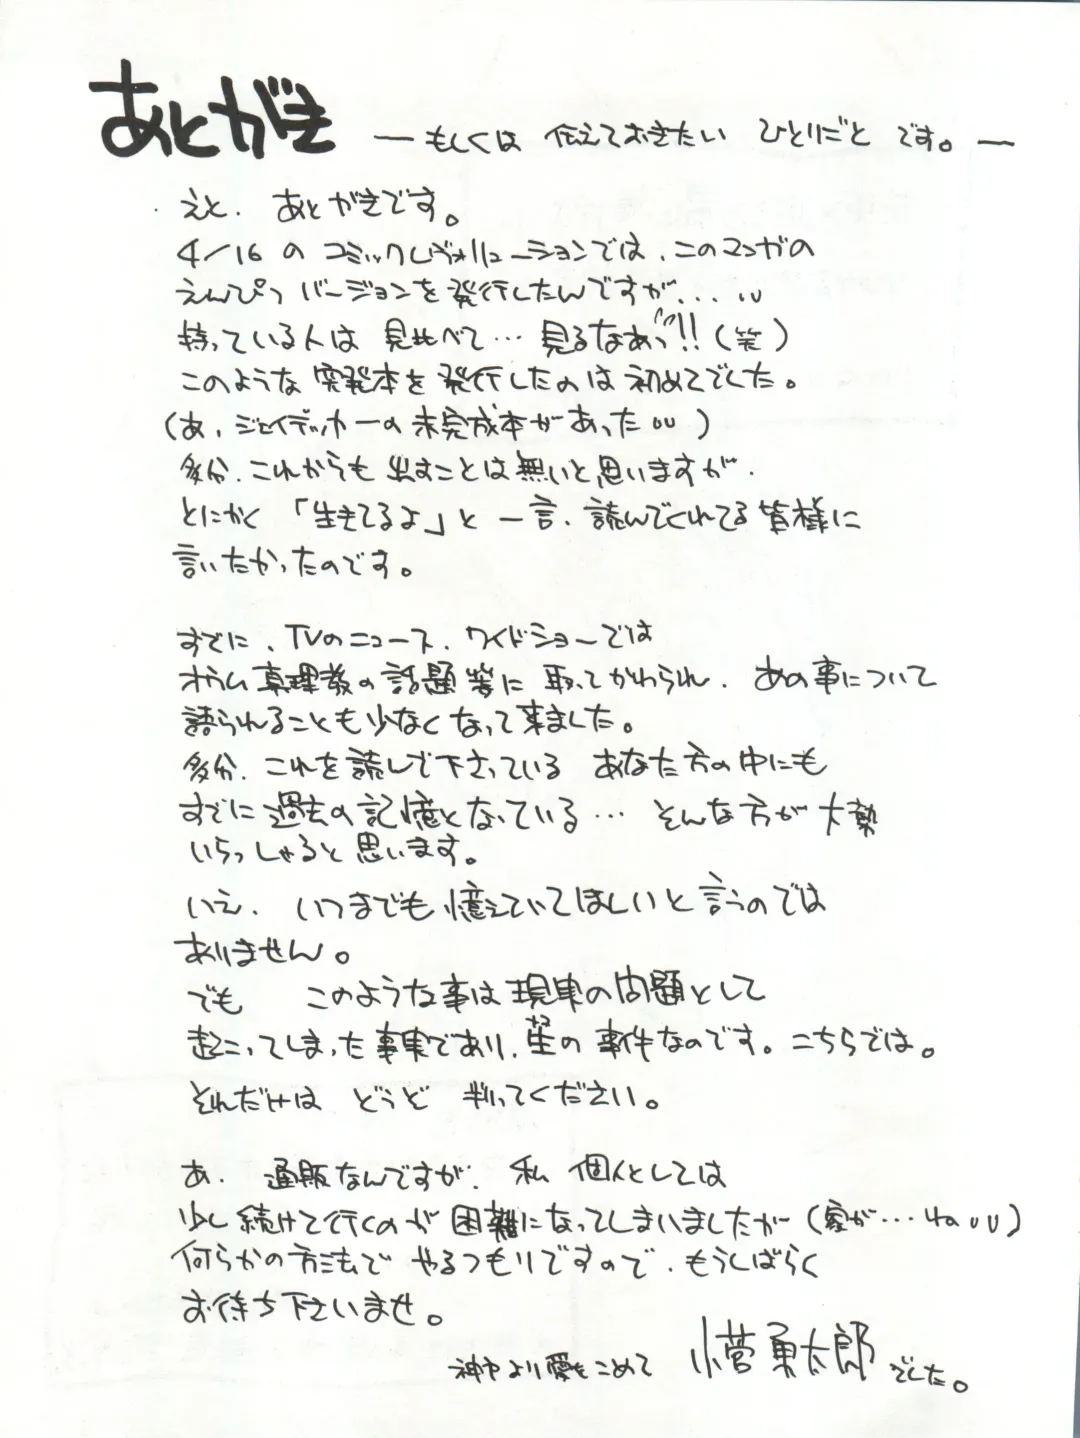 あとがき ―もしくは 伝えておきたい ひとりごと です。―
えと、あとがきです。
4/16 の コミックレヴォリューションでは、このマンガの
えんぴつ バージョンを発行したんですが...
持っている人は 見比べて… 見るなあっ!!(笑)
このような 突発本を 発行したのは 初めてでした。
(あ、ジェイデッカーの未完成本があった)
多分、これからも 出すことは無いと思いますが、
とにかく「生きてるよ」と 一言、読んでくれてる皆様に
言いたかったのです。
すでに、TVのニュース、ワイドショーでは
オウム真理教の話題等に 取ってかわられ、あの事について
語られることも少なくなって来ました。
多分、これを読んで下さっている あなた方の中にも
すでに過去の記憶となっている… そんな方が大勢
いらっしゃると思います。
いえ、いつまでも憶えていてほしいと言うのでは
ありません。
でも このような事は現実の問題として
起こってしまった事実であり、生の 事件なのです。こちらでは。
それだけは どうぞ 判ってください。
あ、通販なんですが、私 個人としては
少し続けて行くのが困難になってしまいましたが(家が…)
何らかの方法で やるつもりですので、もうしばらく
お待ち下さいませ。
神戸より愛をこめて 小菅勇太郎でした。